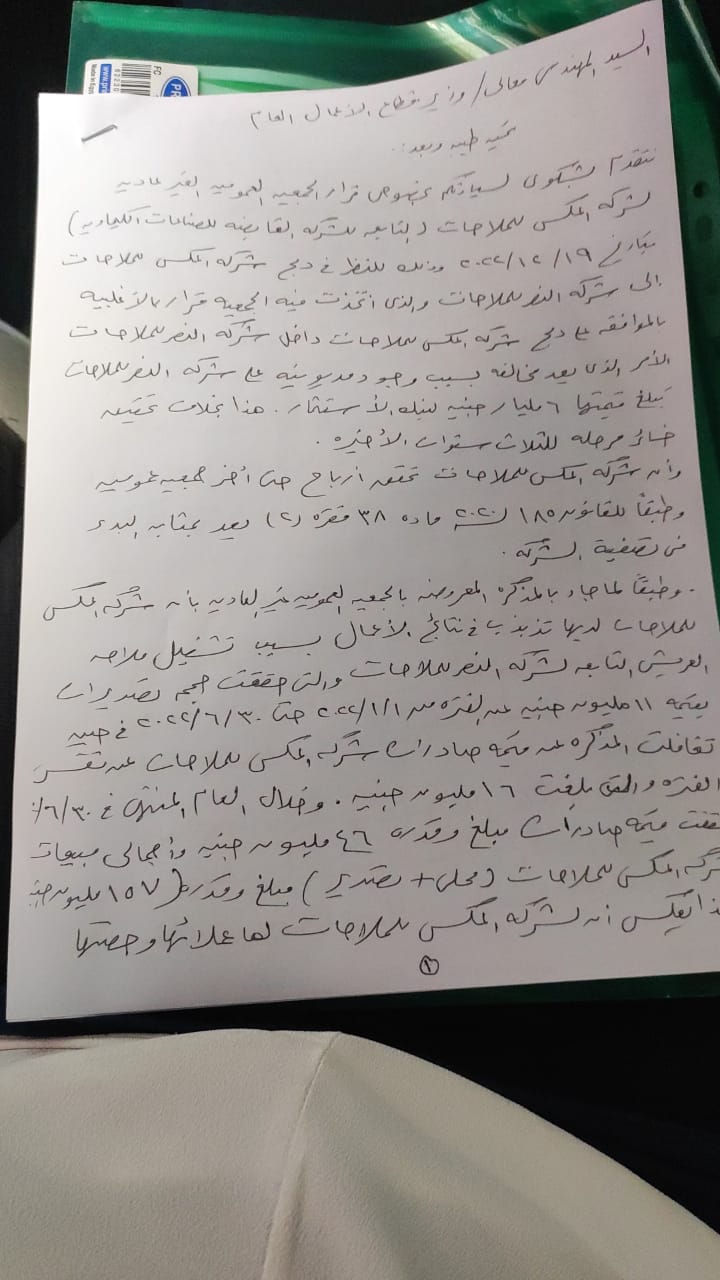 السيد المهندس معالى / وزير قطاع الأعمال العام
تحيه طيبه وبعد :.
نتقدم بشكوى لسيادتكم بخصوص قرار الجمعيه العموميه الغير عاديه
لشركه المكس للملاحات ( التابعه للشركه القابضه للصناعات الكيماويه )
بتاريخ ٢٠٢٢/١٢/١٩ وذلك للنظر فى دمج شركه المكس للملاحات
إلى شركة النصر للملاحات والذى اتخذت فيه الجمعيه قرار بالأغلبيه
بالموافقه على دمج شركه المكس للملاحات داخل شركه النصر للملاحات
الأمر الذى يعد مخالفه بسبب وجود مديونيه على شركه النصر للملاحات
تبلغ قيمتها ٦ مليار جنيه لبنك الأستثمار . هذا بخلاف تحقيق
خسائر مرحله للثلاث سنوات الأخيره .
وأن شركه المكس للملاحات تحقق أرباح حتى أخر جمعيه عموميه
وطبقاً للقانون ١٨٥ لسنه ٢٠٢٠ ماده ٣٨ فقره (٢) يعد بمثابه البدء
فى تصفية الشركه .
. وطبقاً لما جاء بالمذكره المعروضه بالجمعيه العموميه غير العاديه بأن شركه المكس
للملاحات لديها تذبذب فى نتائج الأعمال بسبب تشغيل ملاحه
العريش التابعه لشركه النصر للملاحات والتى حققت حجم تصديرات
بقيمه ١١ مليون جنيه عن الفتره من ٢٠٢٢/١/١ حتى ٢٠٢٢/٦/٣٠ فى حين
تغافلت المذكره عن قيمه صادرات شركه المكس للملاحات عن نفس
الفتره والتى بلغت ١٦ مليون جنيه . وخلال العام المنتهى فى ٦/٣٠/
قيمه صادرات مبلغ وقدره ٤٦ مليون جنيه وأجمالى مبيعات
شركه المكس للملاحات (محلى + تصدير) مبلغ وقدره (١٥٧ مليون جنيه
هذا يعكس أن لشركه المكس للملاحات لها عملائها وحصتها
١
PR
FC
Made in Egypt